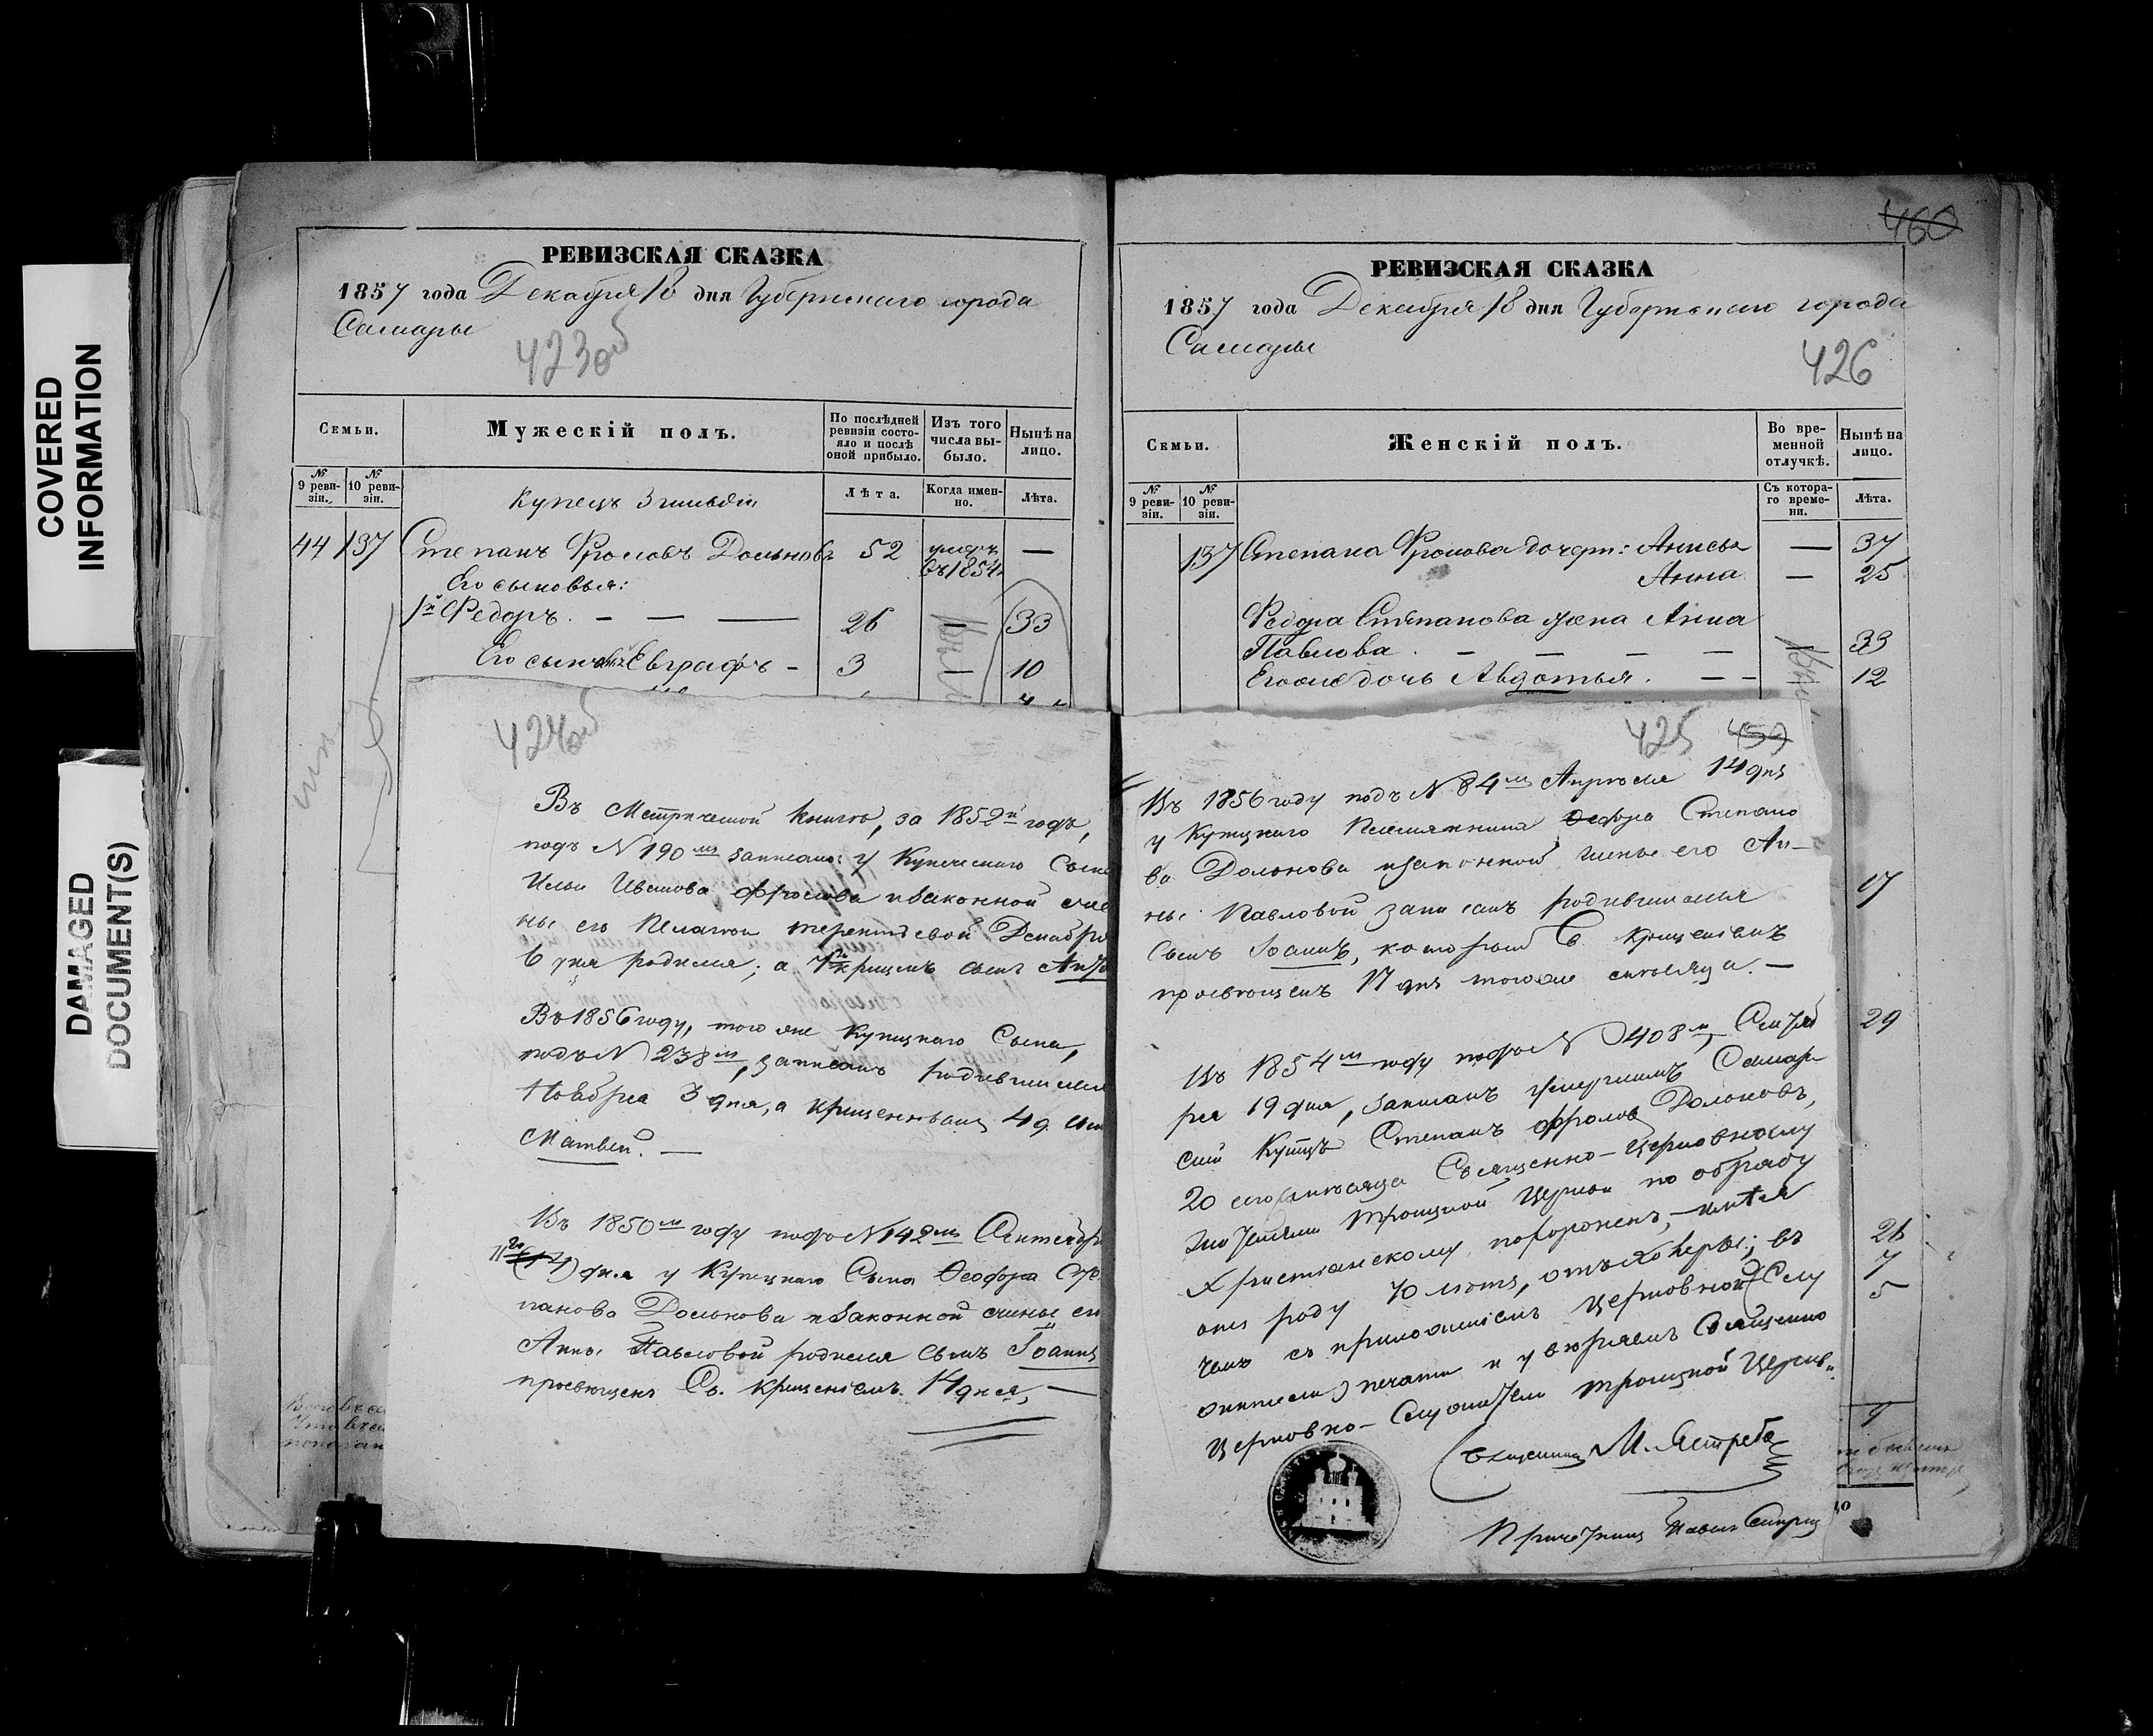 COVERED
INFORMATION
DAMAGED
DOCUMENT(S)
РЕВИЗСКАЯ СКАЗКА
1857 года Декабря 18 дня Губернскаго города
Самары
423об
Семьи.
Мужескій полъ.
По послѣдней ревизіи состояло и послѣ оной прибыло.
Изъ того числа выбыло.
Нынѣ на лицо.
№ 9 ревизіи.
№ 10 ревизіи.
Купецъ 3 гильдіи
Лѣта.
Когда именно.
Лѣта.
44 137 Степанъ Фроловъ Дольновъ 52 умеръ въ 1854 —
Его сыновья:
1й Федоръ. — — — 26 — 33
Его сынъ Евграфъ - 3 — 10
424об
Въ Метрической книгѣ, за 1852й годъ,
подъ N 190мъ записано: у Купеческаго Сына
Ильи Иванова Фролова и законной же
ны его Пелагеи Терентьевой Декабря
6 дня родился; а 7 крещенъ сынъ
Въ 1856 году, того же Купецкаго Сына,
подъ N 238мъ, записанъ родившимся
Ноября 3 дня, а крещеннымъ 4 д.
Матвей. —
Въ 1850м году подъ N 142мъ Сентября
11 (14) дня у Купецкаго Сына Ѳеодора Сте
панова Дольнова и законной жены ег
Анны Павловой родился сынъ Іоаннъ
просвѣщенъ Св. крещеніемъ 14 дня, —
460
РЕВИЗСКАЯ СКАЗКА
1857 года Декабря 18 дня Губернскаго города
Самары
426
Семьи.
Женскій полъ.
Во временной отлучкѣ.
Нынѣ на лицо.
№ 9 ревизіи.
№ 10 ревизіи.
Съ котораго времени.
Лѣта.
137 Степана Фролова дочери: Анисья — 37
Анна — 25
Федора Степанова жена Анна
Павлова. — — — — 33
Его же дочь Авдотья. — — 12
425 459
Въ 1856 году подъ N 84мъ Апрѣля 14 дня
у Купецкаго Племянника Ѳеодора Степано
ва Дольнова и законной жены его Ан-
ны Павловой записанъ родившимся
сынъ Іоаннъ, который Св. крещеніемъ
просвѣщенъ 17 дня того же мѣсяца. —
17
Въ 1854м году подъ N 408м, Сентяб
ря 19 дня, записанъ умершимъ Самар-
скій Купецъ Степанъ Фроловъ Дольновъ,
20 сего мѣсяца Священно-Церковнослу
жителями Троицкой Церкви по обряду
Христіанскому похороненъ, — имѣя
отъ роду 70 лѣтъ, отъ холеры; въ
чемъ съ приложеніемъ Церковной
печати и увѣряемъ Священно
Церковно-Служители Троицкой Церкви.
Священникъ М. Ястреб
Причетникъ Павелъ
29
26
7
5